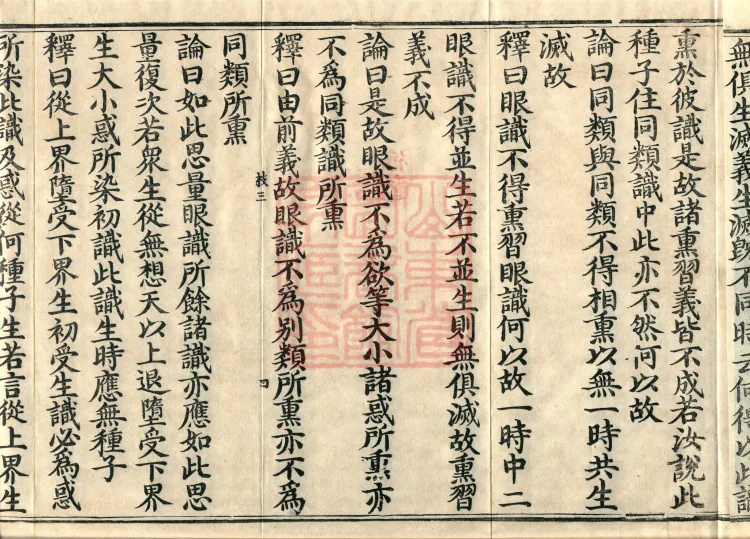 無俱生滅義生滅旣不同時云何得以此識
熏於彼識是故諸熏習義皆不成若汝說此
種子住同類識中此亦不然何以故
論曰同類與同類不得相熏以無一時共生
滅故
釋曰眼識不得熏習眼識何以故一時中二
眼識不得並生若不並生則無俱滅故熏習
義不成
論曰是故眼識不為欲等大小諸惑所熏亦
不為同類識所熏
釋曰由前義故眼識不為別類所熏亦不為
同類所熏
論曰如此思量眼識所餘諸識亦應如此思
量復次若眾生從無想天以上退墮受下界
生大小惑所染初識此識生時應無種子
釋曰從上界墮受下界生初受生識必為惑
所染此識及惑從何種子生若言從上界生